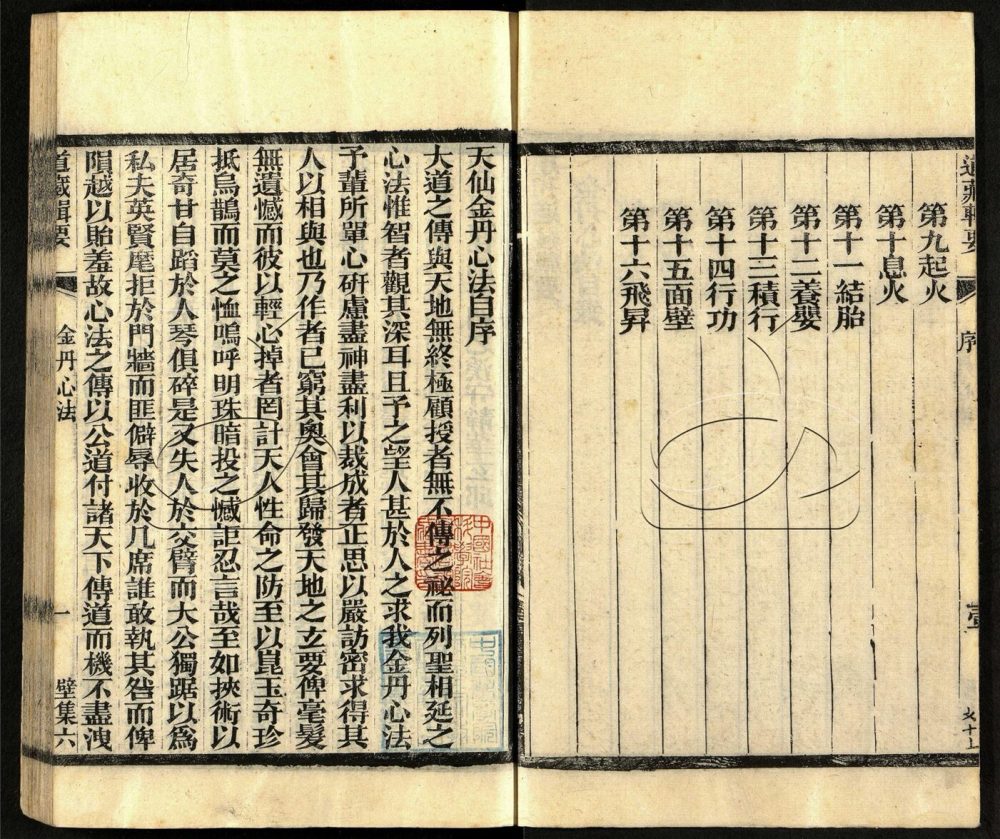 第九起火
第十息火
第十一結胎
第十二養嬰
第十三積行
第十四行功
第十五面壁
第十六飛昇
天仙金丹心法自序
大道之傳與天地無終極顧授者無不傳之祕而列聖相延之
心法惟智者觀其深耳且予之望人甚於人之求我金丹心法
予輩所單心研慮盡神盡利以裁成者正思以嚴訪密求得其
人以相與也乃作者已窮其奧會其歸發天地之玄要俾毫髮
無遺憾而彼以輕心掉者罔計天人性命之防至以崑玉奇珍
抵烏鵲而莫之恤嗚呼明珠暗投之憾詎忍言哉至如挾術以
居奇甘自蹈於人琴俱碎是又失人於交臂而大公獨踞以爲
私夫英賢麾拒於門牆而匪僻辱收於几席誰敢執其咎而俾
隕越以貽羞故心法之傳以公道付諸天下傳道而機不盡洩
道藏輯要
金丹心法
一
壁集六